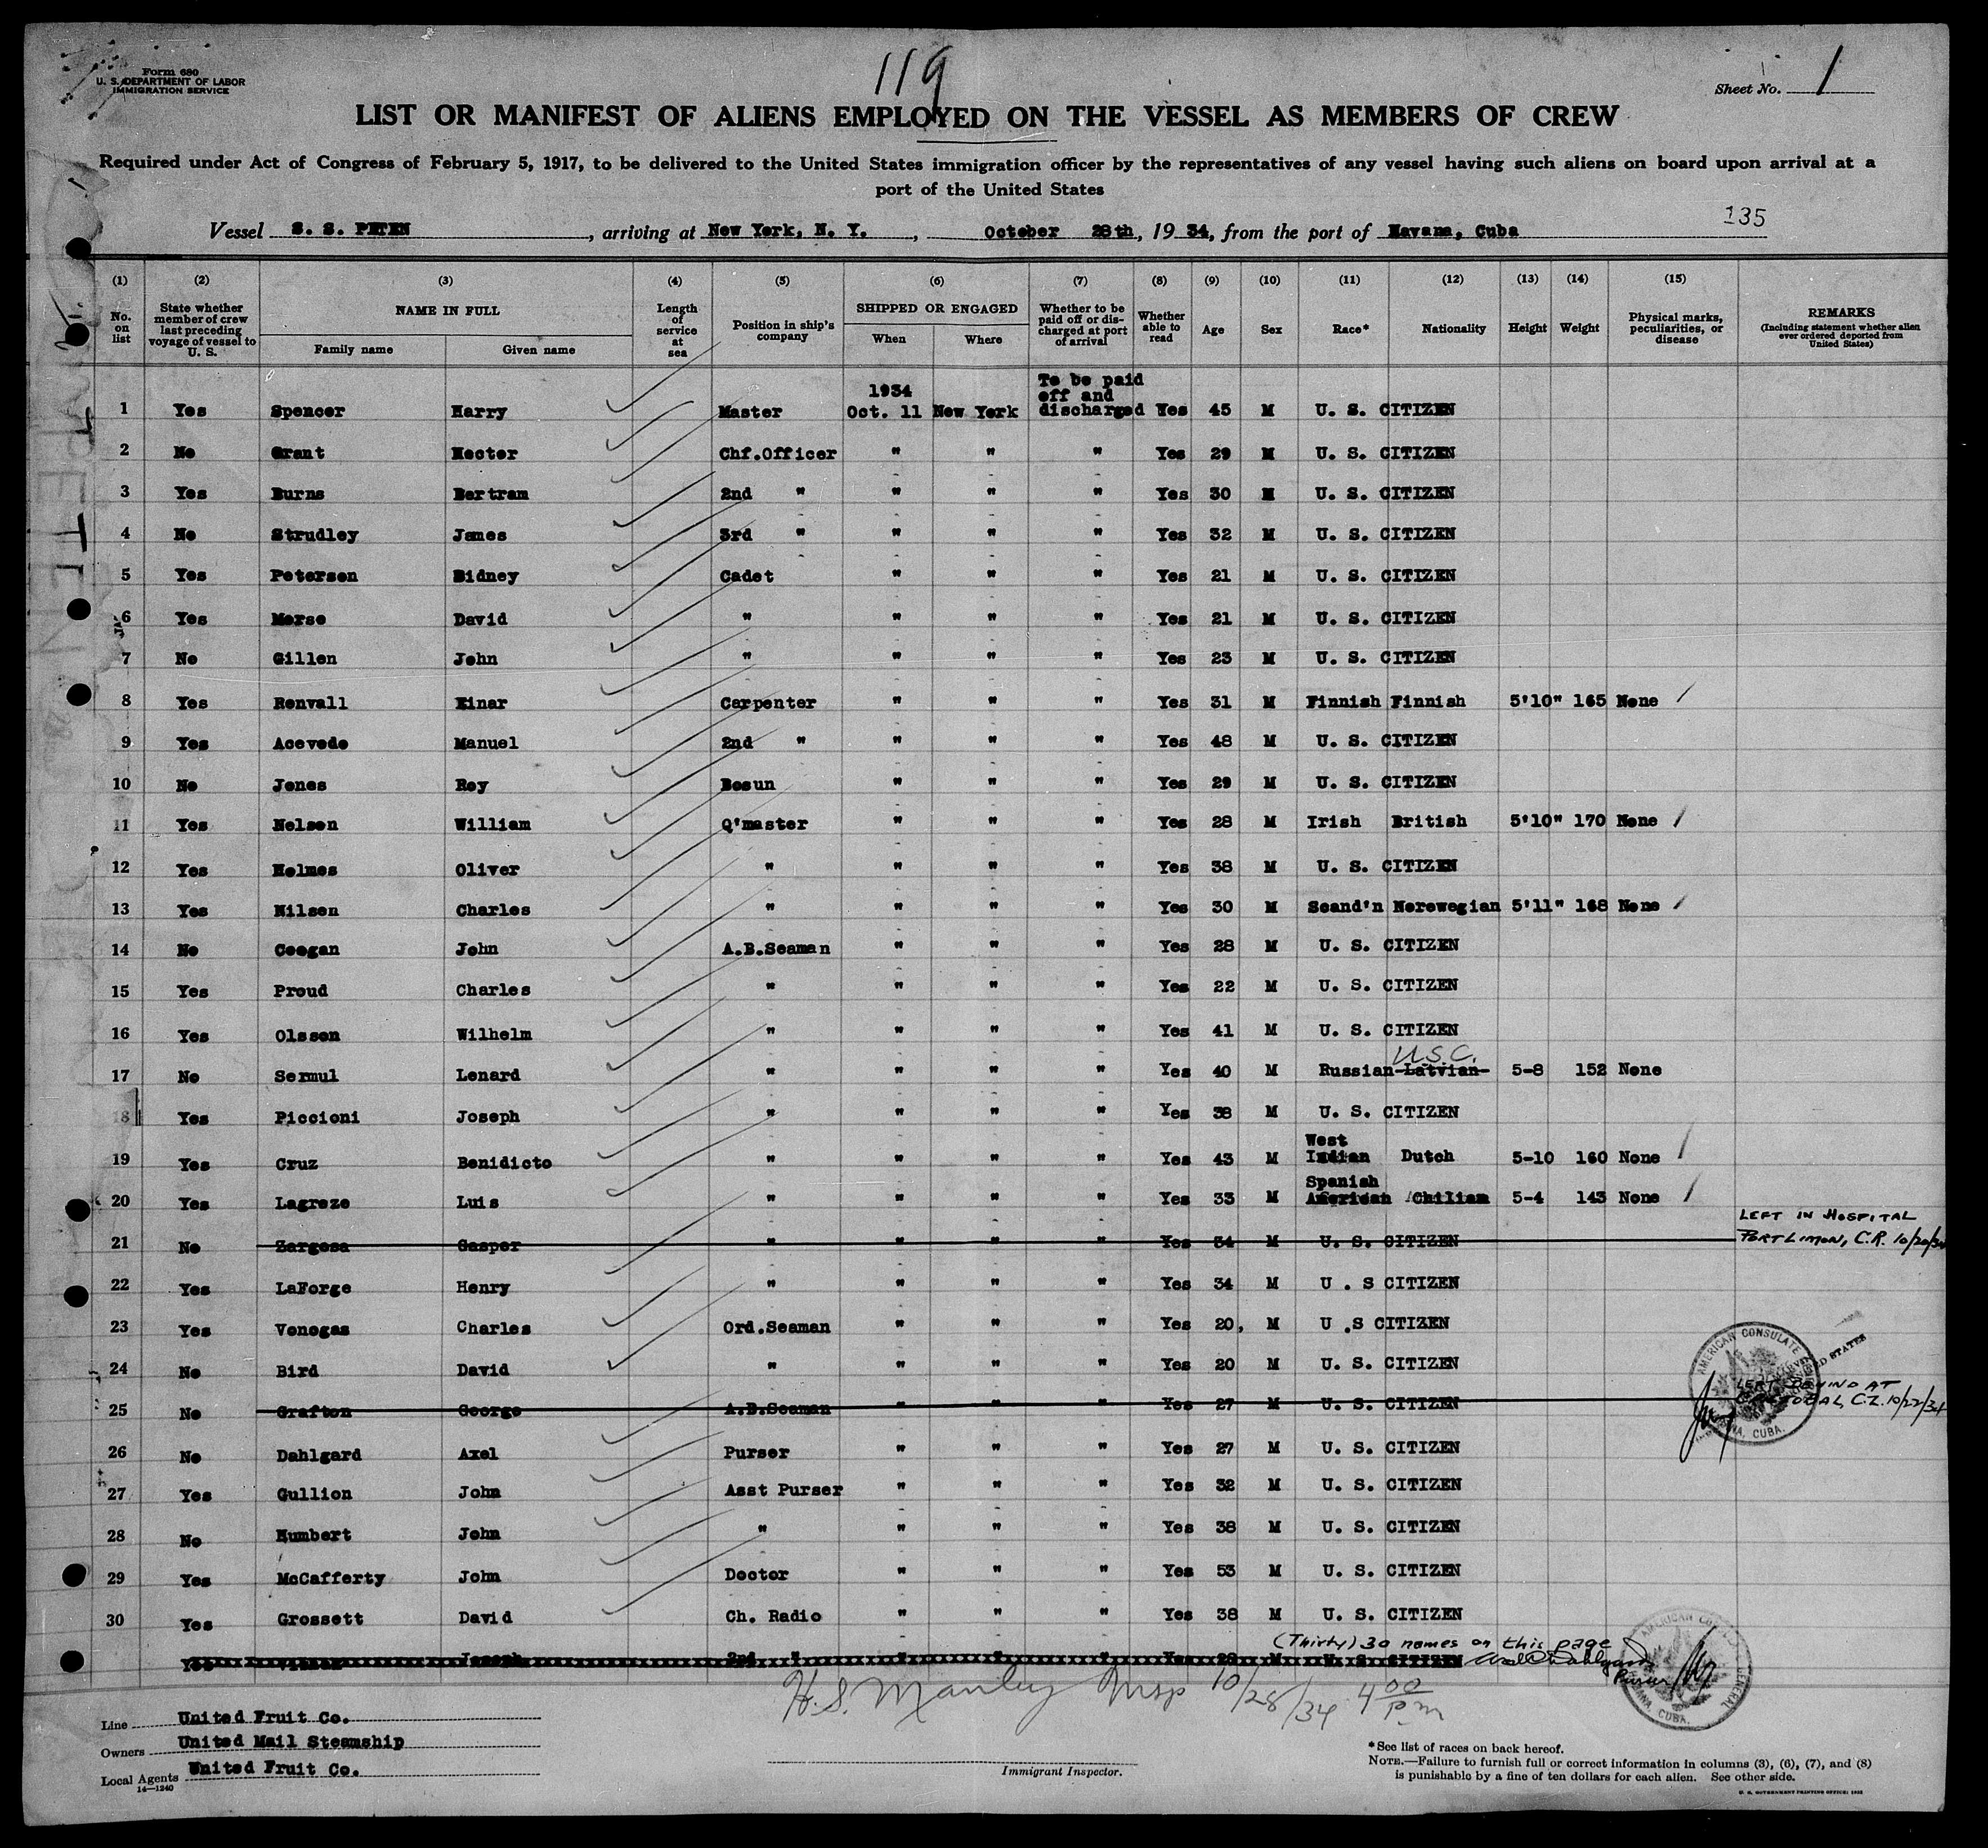 Form 680
U. S. DEPARTMENT OF LABOR
IMMIGRATION SERVICE
119
Sheet No. 1
LIST OR MANIFEST OF ALIENS EMPLOYED ON THE VESSEL AS MEMBERS OF CREW
Required under Act of Congress of February 5, 1917, to be delivered to the United States immigration officer by the representatives of any vessel having such aliens on board upon arrival at a
port of the United States
135
Vessel S. S. PETEN, arriving at New York, N. Y., October 28th, 1934, from the port of Havana, Cuba
(1) (2) (3) (4) (5) (6) (7) (8) (9) (10) (11) (12) (13) (14) (15)
No. on list State whether member of crew last preceding voyage of vessel to U. S. NAME IN FULL Family name Given name Length of service at sea Position in ship's company SHIPPED OR ENGAGED When Where Whether to be paid off or discharged at port of arrival Whether able to read Age Sex Race* Nationality Height Weight Physical marks, peculiarities, or disease REMARKS (Including statement whether alien ever ordered deported from United States)
1 Yes Spencer Harry Master 1934 Oct. 11 New York To be paid off and discharged Yes 45 M U. S. CITIZEN
2 No Grant Hector Chf.Officer " " " Yes 29 M U. S. CITIZEN
3 Yes Burns Bertram 2nd " " " " Yes 30 M U. S. CITIZEN
4 No Strudley James 3rd " " " " Yes 32 M U. S. CITIZEN
5 Yes Petersen Sidney Cadet " " " Yes 21 M U. S. CITIZEN
6 Yes Morse David " " " " Yes 21 M U. S. CITIZEN
7 No Gillen John " " " " Yes 23 M U. S. CITIZEN
8 Yes Renvall Einar Carpenter " " " Yes 31 M Finnish Finnish 5'10" 165 None
9 Yes Acevedo Manuel 2nd " " " " Yes 48 M U. S. CITIZEN
10 No Jones Roy Bosun " " " Yes 29 M U. S. CITIZEN
11 Yes Nelson William Q'master " " " Yes 28 M Irish British 5'10" 170 None
12 Yes Holmes Oliver " " " " Yes 38 M U. S. CITIZEN
13 Yes Nilsen Charles " " " " Yes 30 M Scand'n Norewegian 5'11" 168 None
14 No Coogan John A.B.Seaman " " " Yes 28 M U. S. CITIZEN
15 Yes Proud Charles " " " " Yes 22 M U. S. CITIZEN
16 Yes Olsson Wilhelm " " " " Yes 41 M U. S. CITIZEN
17 No Sermul Lenard " " " " Yes 40 M Russian Latvian U.S.C. 5-8 152 None
18 Yes Piccioni Joseph " " " " Yes 38 M U. S. CITIZEN
19 Yes Cruz Benidicto " " " " Yes 43 M West Indian Dutch 5-10 160 None
20 Yes Lagreze Luis " " " " Yes 33 M Spanish American Chilian 5-4 143 None
21 No Zargosa Gasper " " " " Yes 34 M U. S. CITIZEN LEFT IN HOSPITAL PORT LIMON, C.R. 10/20/34
22 Yes LaForge Henry " " " " Yes 34 M U . S CITIZEN
23 Yes Venegas Charles Ord.Seaman " " " Yes 20, M U .S CITIZEN
24 No Bird David " " " " Yes 20 M U. S. CITIZEN
25 No Grafton George A.B.Seaman " " " Yes 27 M U. S. CITIZEN LEFT BEHIND AT CRISTOBAL, C.Z. 10/22/34
26 No Dahlgard Axel Purser " " " Yes 27 M U. S. CITIZEN
27 Yes Gullion John Asst Purser " " " Yes 32 M U. S. CITIZEN
28 No Humbert John " " " " Yes 38 M U. S. CITIZEN
29 Yes McCafferty John Doctor " " " Yes 53 M U. S. CITIZEN
30 Yes Grossett David Ch. Radio " " " Yes 38 M U. S. CITIZEN
(Thirty) 30 names on this page
Yes Joseph 2nd " " " " Yes M U. S. CITIZEN Axel Dahlgard
Purser
AMERICAN CONSULATE GENERAL
HAVANA, CUBA.
H. S. Manley Insp 10/28/34 4 00 pm
Line United Fruit Co.
Owners United Mail Steamship
Local Agents United Fruit Co.
14—1240
Immigrant Inspector.
*See list of races on back hereof.
NOTE.—Failure to furnish full or correct information in columns (3), (6), (7), and (8)
is punishable by a fine of ten dollars for each alien. See other side.
U. S. GOVERNMENT PRINTING OFFICE: 1932